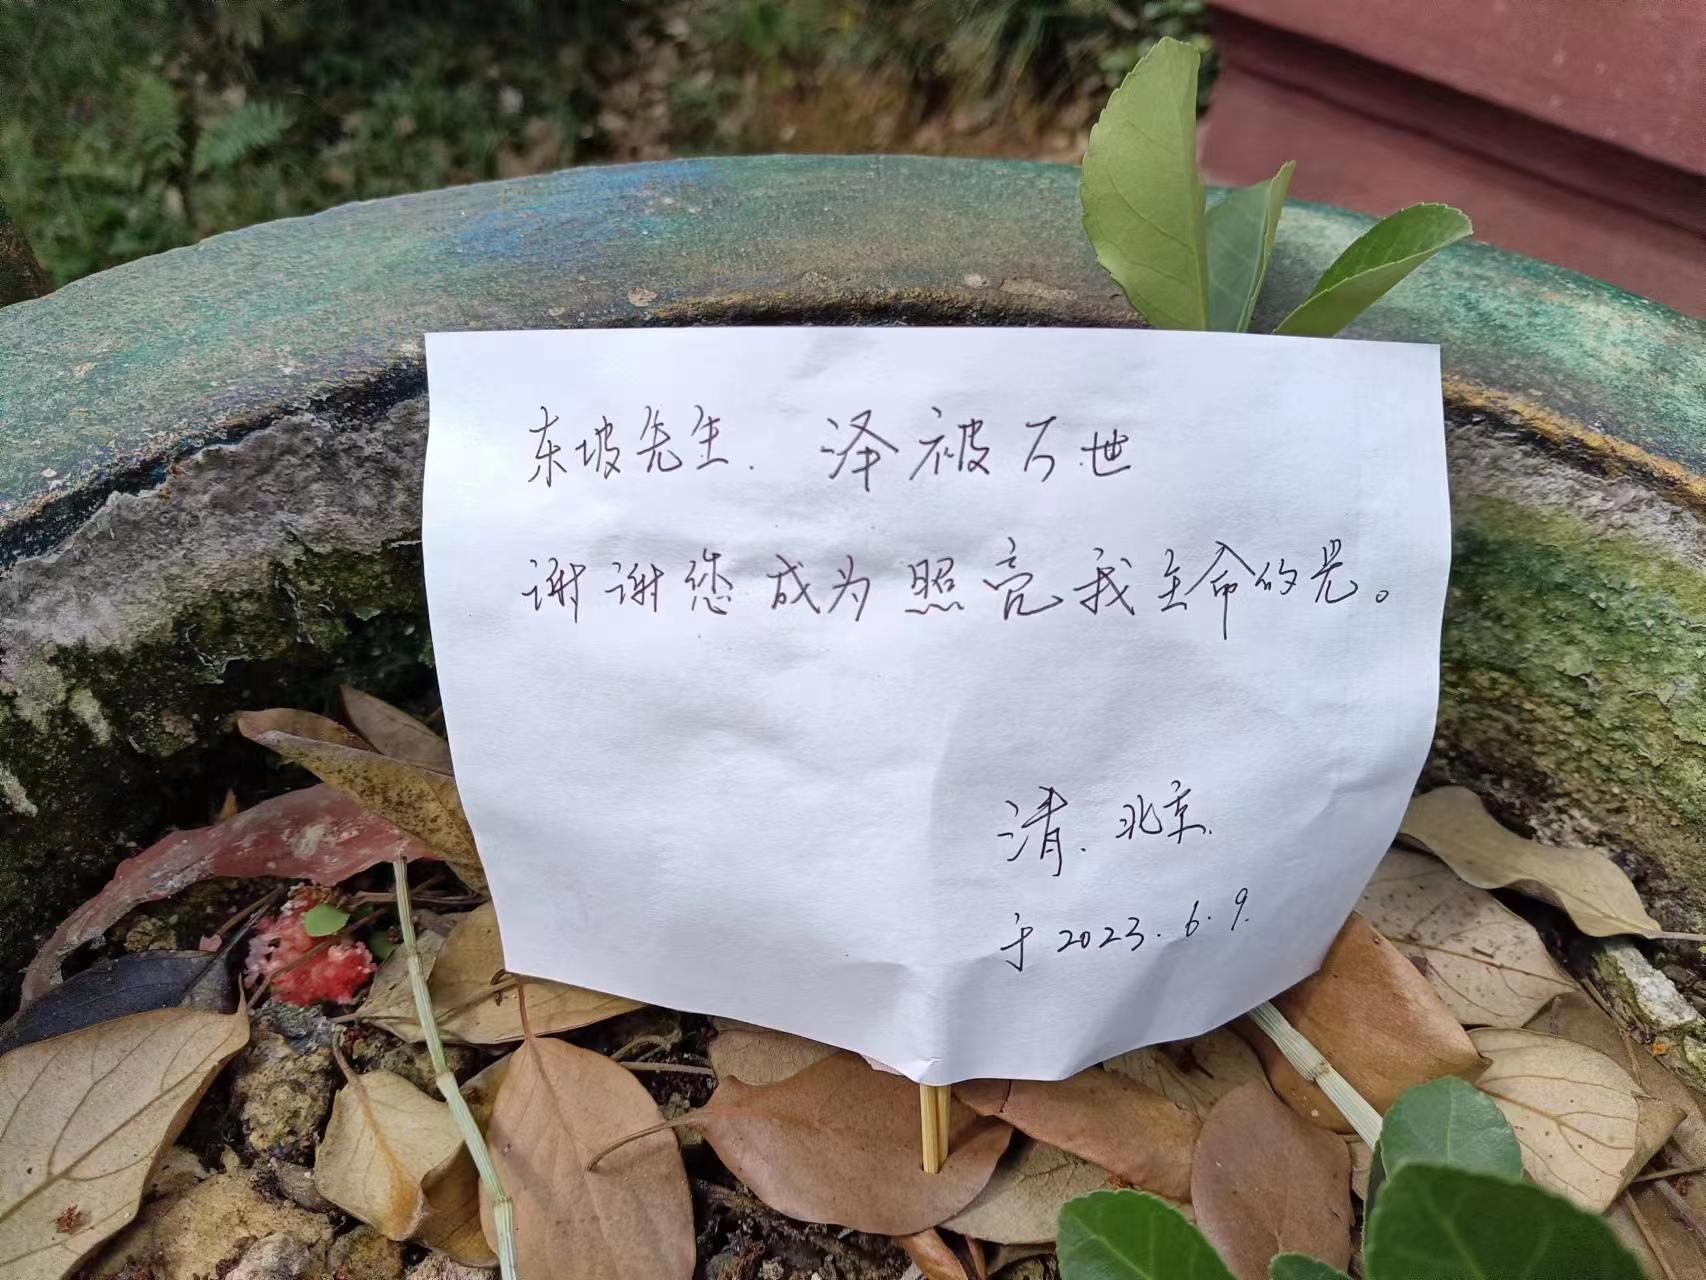 东坡先生. 泽被万世
谢谢您成为照亮我生命的光。
清. 北京.
于2023.6.9.